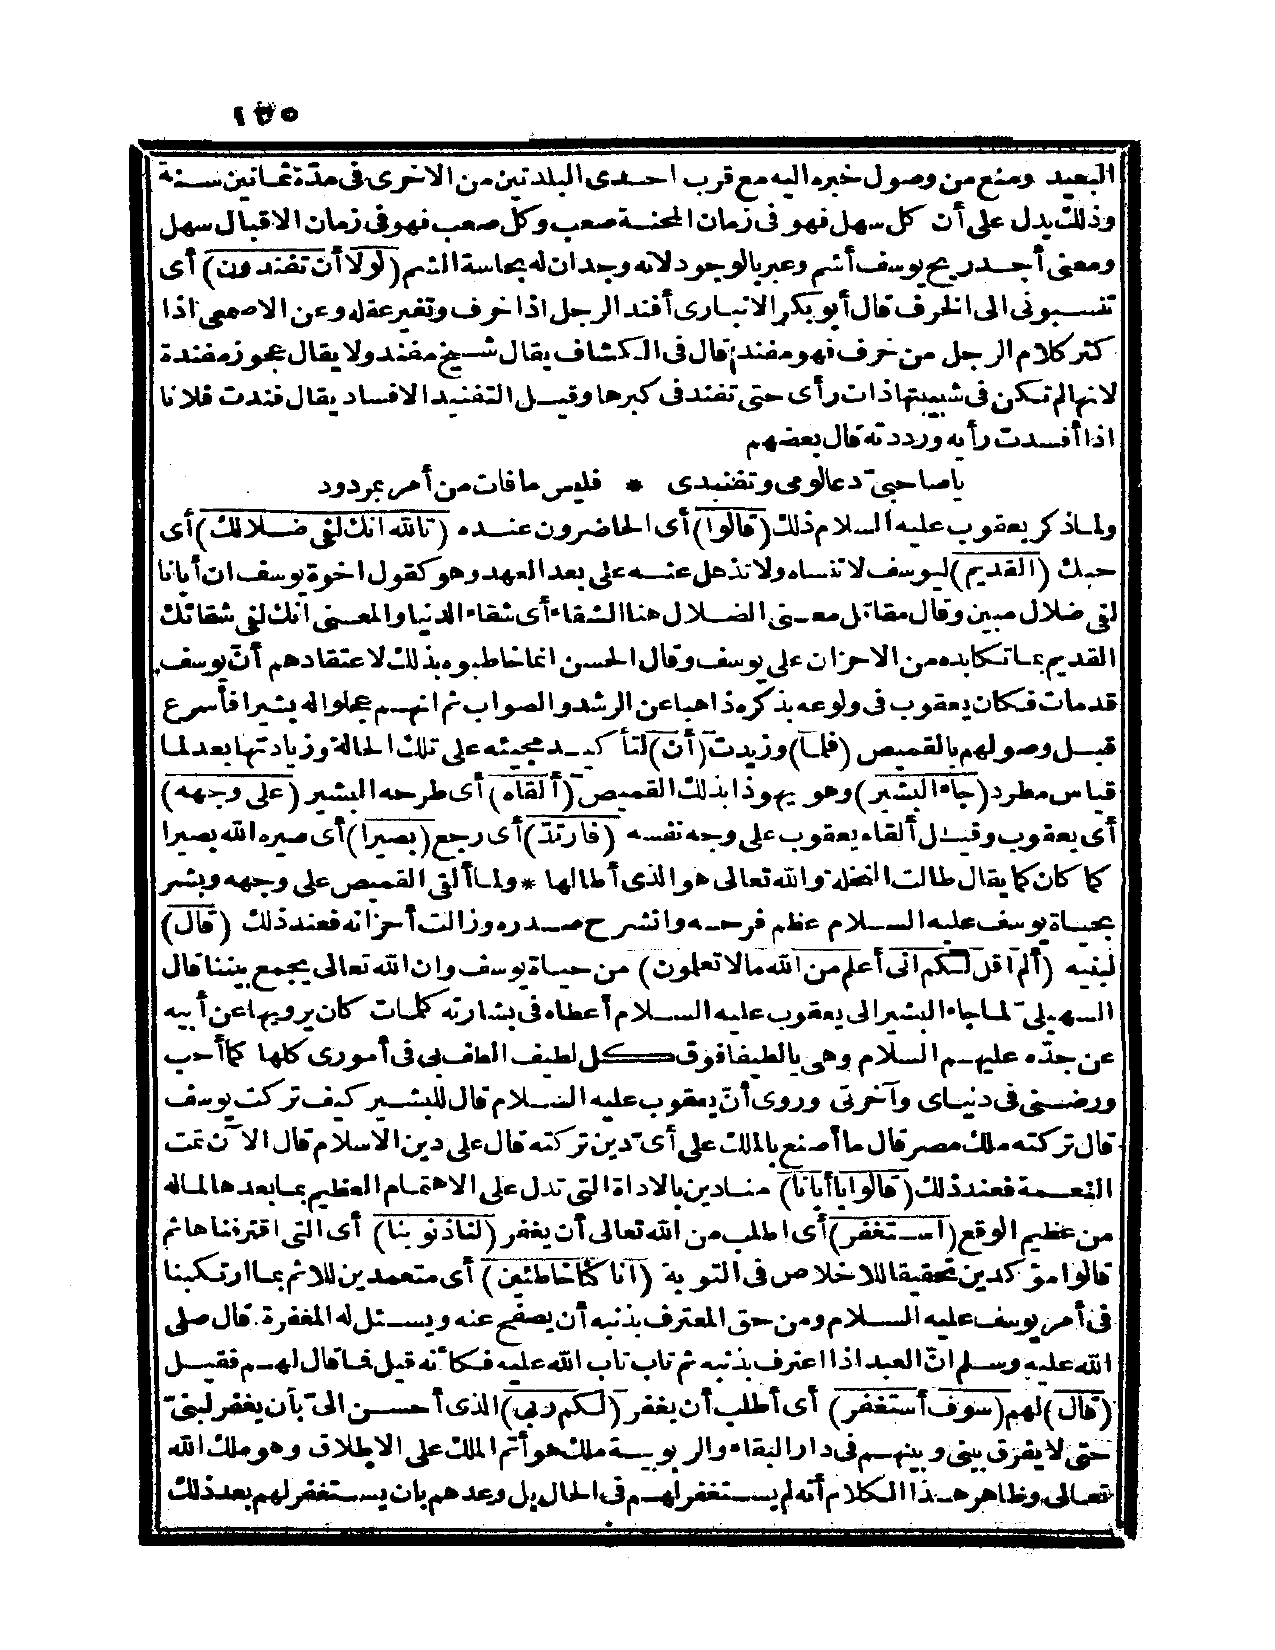 ١٣٥
البعيد ومنع من وصول خبره اليه مع قرب احدى البلدتين من الاخرى فى مدّة ثمانين سنة
وذلك يدل على أن كل سهل فهو فى زمان المحنة صعب وكل صعب فهو فى زمان الاقبال سهل
ومعنى أجد ريح يوسف أشم وعبر بالوجود لانه وجدان له بحاسة الشم (لولا أن تفندون) أى
تنسبونى الى الخرف قال أبو بكر الانبارى أفند الرجل اذا خرف وتغير عقله وعن الاصمعى اذا
كثر كلام الرجل من خرف فهو مفند قال فى الكشاف يقال شيخ مفند ولا يقال عجوز مفندة
لانها لم تكن فى شبيبتها ذات رأى حتى تفند فى كبرها وقيل التفنيد الافساد يقال فندت فلانا
اذا أفسدت رأيه ورددته قال بعضهم
ياصاحبىّ دعا لومى وتفنيدى * فليس ما فات من أمر بمردود
ولما ذكر يعقوب عليه السلام ذلك (قالوا) أى الحاضرون عنده (تالله انك لفى ضلالك) أى
حبك (القديم) ليوسف لا تنساه ولا تذهل عنه على بعد العهد وهو كقول اخوة يوسف ان أبانا
لفى ضلال مبين وقال مقاتل معنى الضلال هنا الشقاء أى شقاء الدنيا والمعنى انك لفى شقائك
القديم بما تكابده من الاحزان على يوسف وقال الحسن انما خاطبوه بذلك لاعتقادهم أنّ يوسف
قد مات فكان يعقوب فى ولوعه بذكره ذاهبا عن الرشد والصواب ثم انهم عجلوا له بشيرا فأسرع
قبل وصولهم بالقميص (فلما) وزيدت (أن) لتأكيد مجيئه على تلك الحالة وزيادتها بعد لما
قياس مطرد (جاء البشير) وهو يهوذا بذلك القميص (ألقاه) أى طرحه البشير (على وجهه)
أى يعقوب وقيل ألقاه يعقوب على وجه نفسه (فارتدّ) أى رجع (بصيرا) أى صيره الله بصيرا
كما كان كما يقال طالت النخلة والله تعالى هو الذى أطالها * ولما ألقى القميص على وجهه وبشر
بحياة يوسف عليه السلام عظم فرحه وانشرح صدره وزالت أحزانه فعند ذلك (قال)
لبنيه (ألم أقل لكم انى أعلم من الله ما لا تعلون) من حياة يوسف وان الله تعالى يجمع بيننا قال
السهيلىّ لما جاء البشير الى يعقوب عليه السلام أعطاه فى بشارته كلمات كان يرويها عن أبيه
عن جدّه عليهم السلام وهى يا لطيفا فوق كل لطيف الطف بى فى أمورى كلها كما أحب
ورضنى فى دنياى وآخرتى وروى أنّ يعقوب عليه السلام قال للبشير كيف تركت يوسف
قال تركته ملك مصر قال ما أصنع بالملك على أىّ دين تركته قال على دين الاسلام قال الآن تمت
النعمة فعند ذلك (قالوا يا أبانا) منادين بالاداة التى تدل على الاهتمام العظيم بما بعدها لما له
من عظيم الوقع (استغفر) أى اطلب من الله تعالى أن يغفر (لنا ذنوبنا) أى التى اقترفناها ثم
قالوا مؤكدين تحقيقا للاخلاص فى التوبة (انا كنا خاطئين) أى متعمدين للاثم بما ارتكبنا
فى أمر يوسف عليه السلام ومن حق المعترف بذنبه أن يصفح عنه ويسئل له المغفرة. قال صلى
الله عليه وسلم انّ العبد اذا اعترف بذنبه ثم تاب تاب الله عليه فكأنه قيل فما قال لهم فقيل
(قال) لهم (سوف أستغفر) أى أطلب أن يغفر (لكم ربى) الذى أحسن الىّ بأن يغفر لبنىّ
حتى لا يفرق بينى وبينهم فى دار البقاء والربوبية ملك هو أتم الملك على الاطلاق وهو ملك الله
تعالى وظاهر هذا الكلام أنه لم يستغفر لهم فى الحال بل وعدهم بان يستغفر لهم بعد ذلك